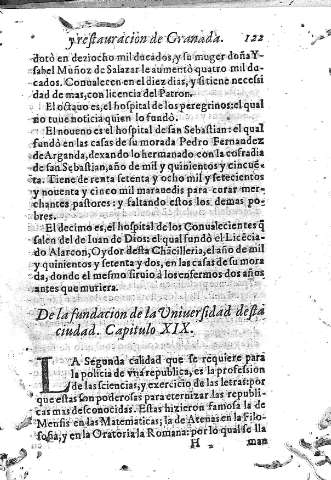 y restauracion de Granada. 122
dotò en deziocho mil ducados, y su muger doña Y-
sabel Muñoz de Salazar le aumentò quatro mil du-
cados. Conualecen en el diez dias, y si tiene necessi
dad de mas, con licencia del Patron.
El octauo es, el hospital de los peregrinos: el qual
no tuue noticia quien lo fundò.
El noueno es el hospital de san Sebastian: el qual
fundò en las casas de su morada Pedro Fernandez
de Arganda, dexando lo hermanado con la cofradia
de san Sebastian, año de mil y quinientos y cincuē-
ta. Tiene de renta setenta y ocho mil y setecientos
y nouenta y cinco mil marauedis para curar mer-
chantes pastores: y faltando estos los demas po-
bres.
El decimo es, el hospital de los Conualecientes q̃
salen del de Iuan de Dios: el qual fundò el Licēcia-
do Alarcon, Oydor desta Chācilleria, el año de mil
y quinientos y setenta y dos, en las casas de su mora
da, donde el mesmo siruio à los enfermos dos años
antes que muriera.
De la fundacion de la Vniuersidad desta
ciudad. Capitulo XIX.
LA Segunda calidad que se requiere para
la policia de vna republica, es la profession
de las sciencias, y exercicio de las letras: por
que estas son poderosas para eternizar las republi-
cas mas desconocidas. Estas hizieron famosa la de
Menfis en las Matematicas; la de Atenas en la Filo-
sofia, y en la Oratoria la Romana: por lo qual se lla
H man